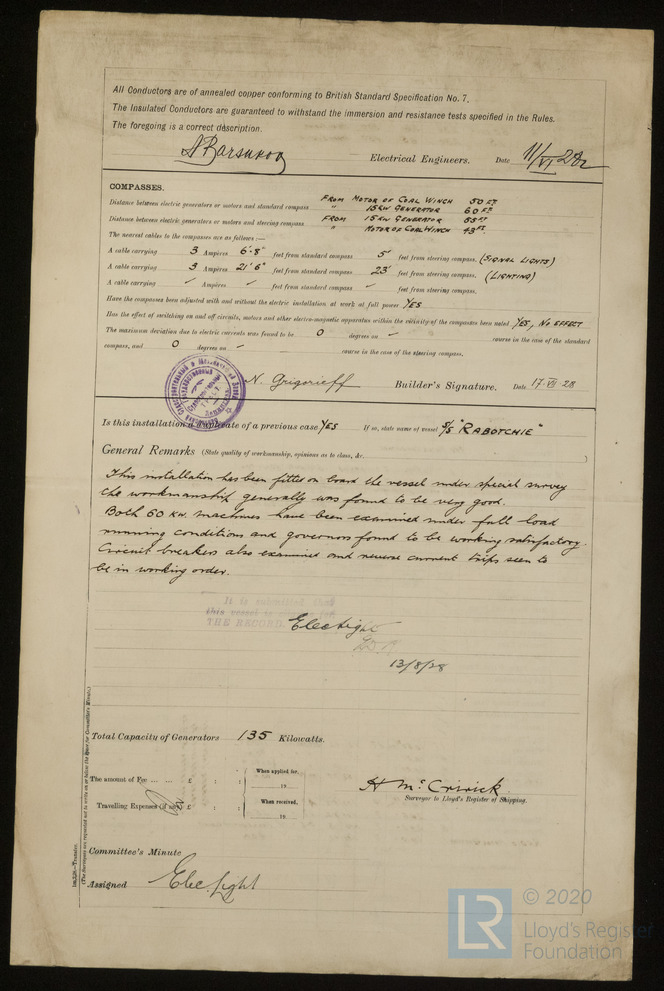 All Conductors are of annealed copper conforming to British Standard Specification No. 7.
The Insulated Conductors are guaranteed to withstand the immersion and resistance tests specified in the Rules.
The foregoing is a correct description.
Electrical Engineers. Date 11/VI 28
COMPASSES.
Distance between electric generators or motors and standard compass FROM MOTOR OF COAL WINCH 50 FT
" 15 KW GENERATOR 60 FT
Distance between electric generators or motors and steering compass FROM 15 KW GENERATOR 55 FT
" MOTOR OF COAL WINCH 43 FT
The nearest cables to the compasses are as follows :—
A cable carrying 3 Ampères 6'-8" feet from standard compass 5' feet from steering compass. (SIGNAL LIGHTS)
A cable carrying 3 Ampères 21'6" feet from standard compass 23' feet from steering compass. (LIGHTING)
A cable carrying – Ampères – feet from standard compass – feet from steering compass.
Have the compasses been adjusted with and without the electric installation at work at full power YES
Has the effect of switching on and off circuits, motors and other electro-magnetic apparatus within the vicinity of the compasses been noted YES, NO EFFECT
The maximum deviation due to electric currents was found to be 0 degrees on – course in the case of the standard
compass, and 0 degrees on – course in the case of the steering compass.
N. Grigorieff Builder's Signature. Date 17-VII-28
Is this installation a duplicate of a previous case YES If so, state name of vessel S/S "RABOTCHIE"
General Remarks (State quality of workmanship, opinions as to class, &c.
This installation has been fitted on board the vessel under special survey
the workmanship generally was found to be very good.
Both 60 KW. machines have been examined under full load
running conditions and governors found to be working satisfactory.
Circuit breakers also examined and reverse current trips seen to
be in working order.
It is submitted that
this vessel is eligible for
THE RECORD.
Elec light
13/8/28
Total Capacity of Generators 135 Kilowatts.
The amount of Fee ... ... £ : : When applied for,
19
Travelling Expenses (if any) £ : : When received,
19
H McCririck
Surveyor to Lloyd's Register of Shipping.
Committee's Minute
Assigned Elec. Light
1m,7,28.—Transfer.
(The Surveyors are requested not to write on or below the space for Committee's Minute.)
LR
© 2020
Lloyd's Register
Foundation